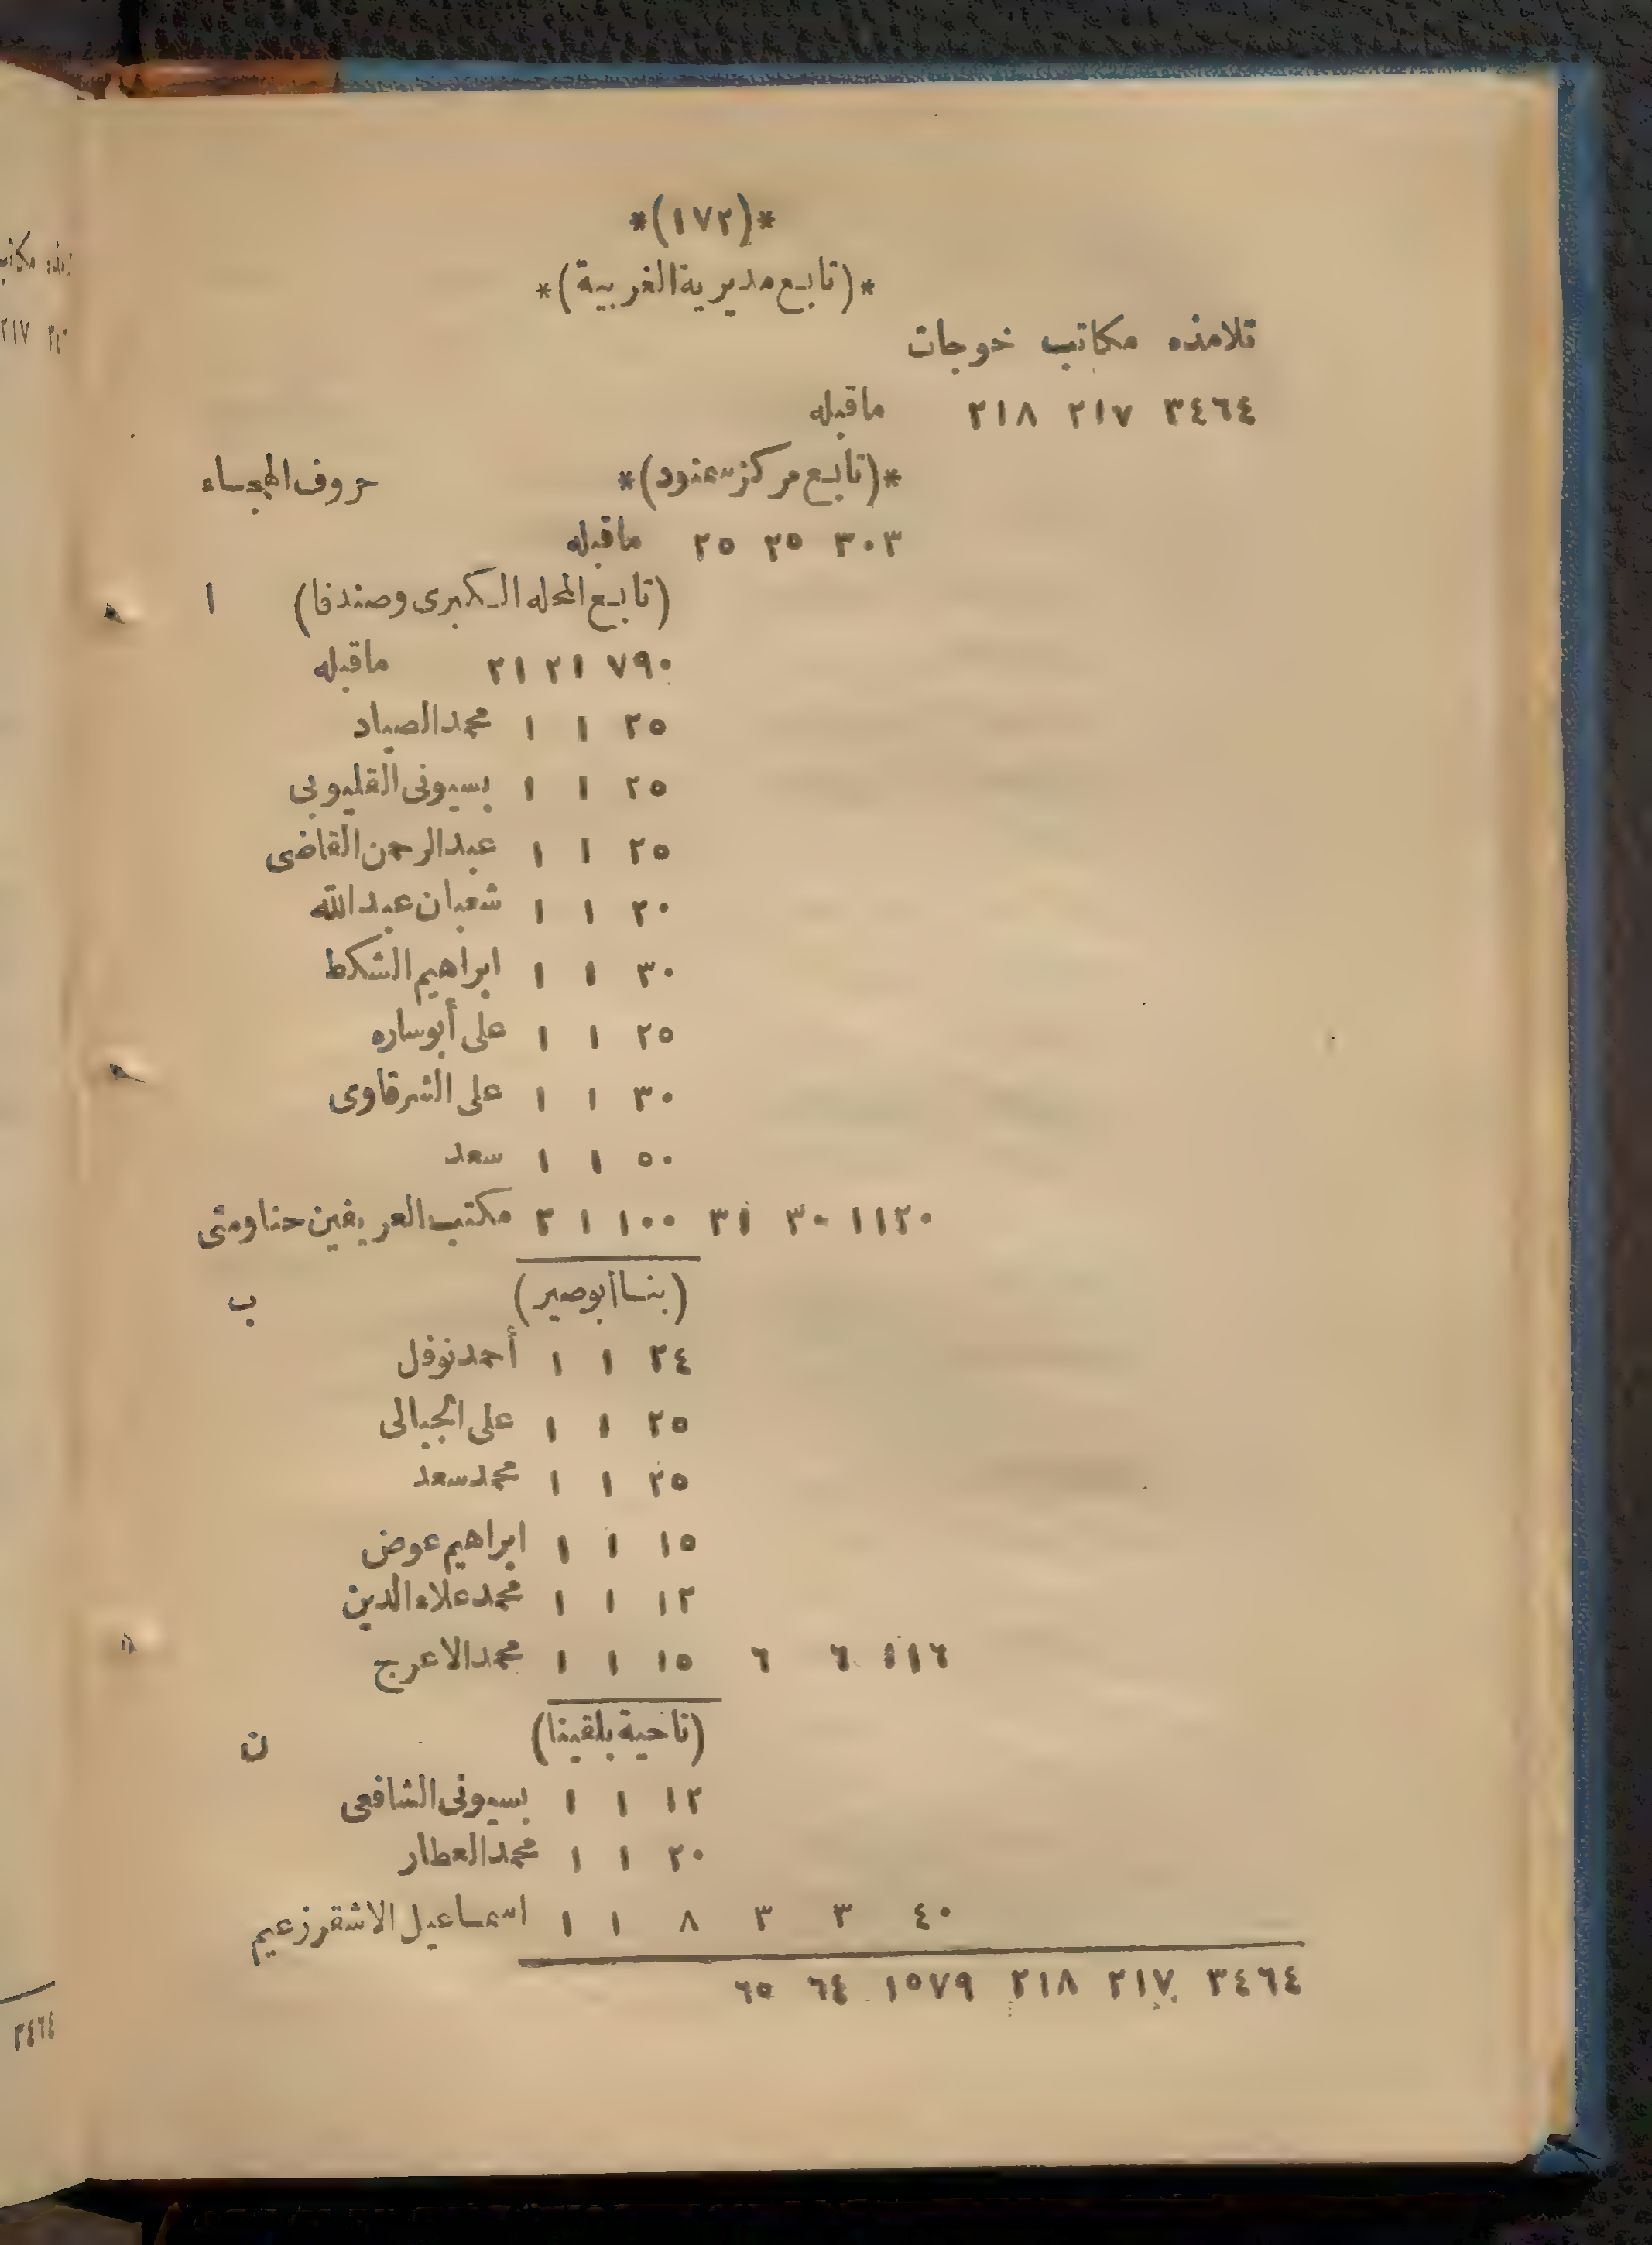 *(١٧٢)*
*(تابع مديرية الغربية)*
تلامذه مكاتب خوجات
٣٤٦٤ ٢١٧ ٢١٨ ماقبله
*(تابع مركز سمنود)* حروف الهجاء
٣٠٣ ٢٥ ٢٥ ماقبله
(تابع المحله الكبرى وصندفا) ا
٧٩٠ ٢١ ٢١ ماقبله
٢٥ ١ ١ محمد الصياد
٢٥ ١ ١ بسيونى القليوبى
٢٥ ١ ١ عبد الرحمن القاضى
٢٠ ١ ١ شعبان عبد الله
٣٠ ١ ١ ابراهيم الشكط
٢٥ ١ ١ على أبوساره
٣٠ ١ ١ على الشرقاوى
٥٠ ١ ١ سعد
١١٢٠ ٣٠ ٣١ ١٠٠ ١ ٢ مكتب العريفين حنا ومتى
(بنا أبوصير) ب
٢٤ ١ ١ أحمد نوفل
٢٥ ١ ١ على الجبالى
٢٥ ١ ١ محمد سعد
١٥ ١ ١ ابراهيم عوض
١٢ ١ ١ محمد علاء الدين
١١٦ ٦ ٦ ١٥ ١ ١ محمد الاعرج
(ناحية بلقينا) ن
١٢ ١ ١ بسيونى الشافعى
٢٠ ١ ١ محمد العطار
٤٠ ٣ ٣ ٨ ١ ١ اسماعيل الاشقر زعيم
٣٤٦٤ ٢١٧ ٢١٨ ١٥٧٩ ٦٤ ٦٥